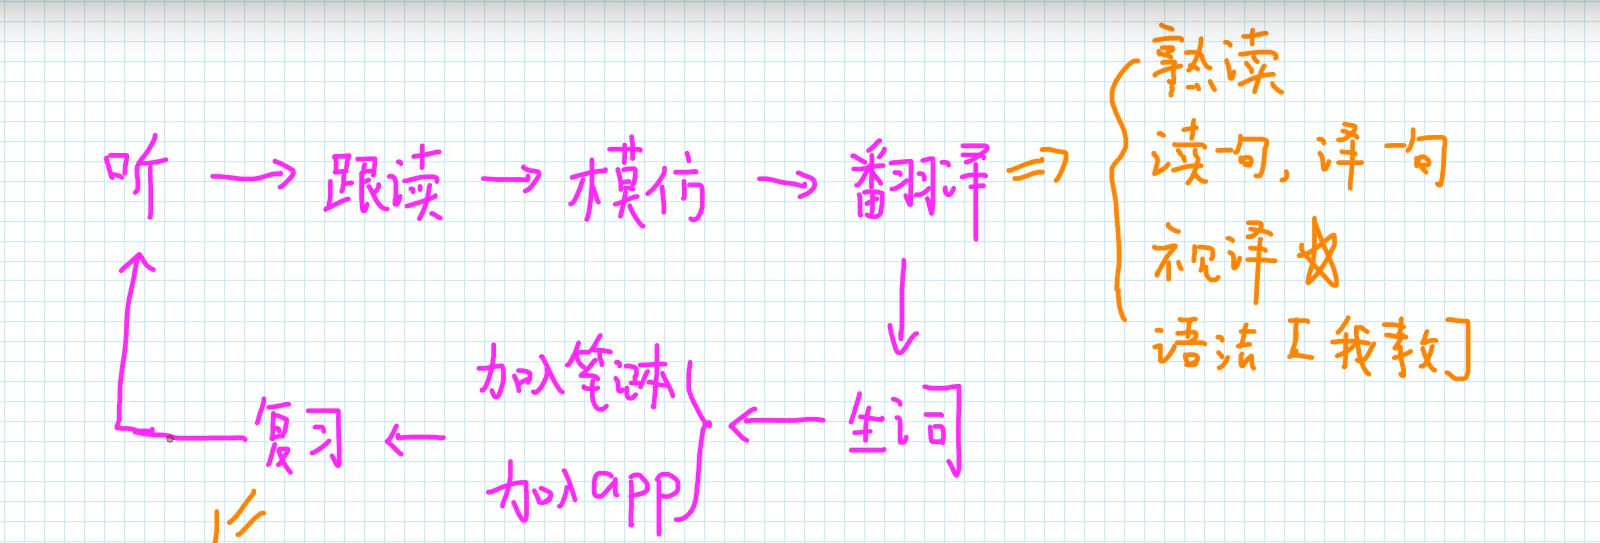 听 → 跟读 → 模仿 → 翻译 ⇒
熟读
读一句, 译一句
视译 ☆
语法 [我教]
生词
加入笔记本
加入app
复习